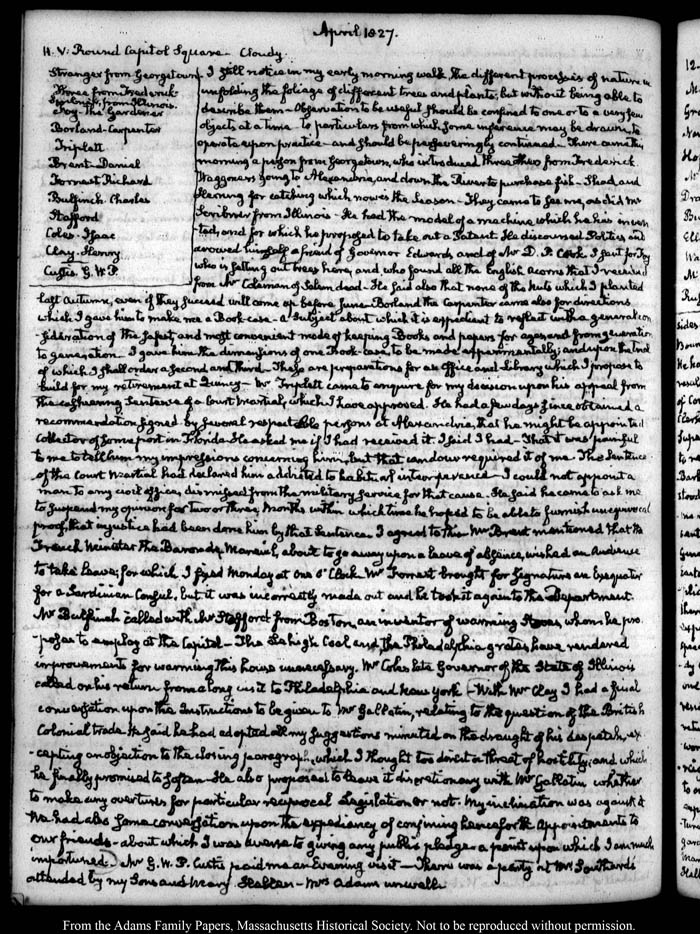 April 1827.
H. V: Round Capitol Square – Cloudy.
Stranger from Georgetown
Three from Frederick
Scribner, from Illinois.
Foy – The Gardener
Borland – Carpenter
Triplett
Brent – Daniel
Forrest Richard
Bulfinch – Charles
Stafford
Coles – Isaac
Clay – Henry
Custis G. W. P.
I still notice in my early morning walk, the different processes of nature in
unfolding the foliage of different trees and plants; but without being able to
describe them – Observation to be useful should be confined to one or to a very few
objects at a time – to particulars from which some inference may be drawn, to
operate upon practice – and should be perseveringly continued – There came this
morning a person from Georgetown, who introduced three others from Frederick.
Waggoners going to Alexandria, and down the River to purchase fish – Shad, and
Herring for catching which now is the Season – They came to see me, as did Mr
Scribner from Illinois – He had the model of a machine which he has inven
-ted, and for which he proposed to take out a Patent. He discoursed Politics and
avowed himself a friend of Governor Edwards and of Mr D. P. Cook. I sent for Foy
who is setting out trees here, and who found all the English acorns that I received
from Mr Colman of Salem dead – He said also that none of the nuts which I planted
last Autumn, even if they succeed will come up before June – Borland the Carpenter came also for directions
which I gave him to make me a Book-case – a subject about which it is expedient to reflect with a general con
-sideration of the safest, and most convenient mode of keeping Books and papers for ages and from generation
to generation – I gave him the dimensions of one Book-case, to be made experimentally; and upon the trial
of which I shall order a second and third. These are preparations for an Office and Library which I propose to
build for my retirement at Quincy – Mr Triplett came to enquire for my decision upon his appeal from
the cashiering Sentence of a Court Martial, which I have approved. He had a few days since obtained a
recommendation signed by several respectable persons at Alexandria, that he might be appointed
Collector of some port in Florida – He asked me if I had received it. I said I had – That it was painful
to me to tell him my impressions concerning him, but that candour required it of me. The Sentence
of the Court Martial had declared him addicted to habits of intemperance – I could not appoint a
man to any civil office, dismissed from the military service for that cause. He said he came to ask me
to suspend my opinion for two or three Months within which time he hoped to be able to furnish unequivocal
proof, that injustice had been done him by that Sentence. I agreed to this – Mr Brent mentioned that the
French Minister the Baron de Mareuil, about to go away upon a leave of absence, wished an Audience
to take leave; for which I fixed Monday at one O'Clock. Mr Forrest brought for signature an Exequatur
for a Sardinian Consul, but it was incorrectly made out and he took it again to the Department.
Mr Bulfinch called with Mr Stafford from Boston, an inventor of warming Stoves, whom he pro
-poses to employ at the Capitol – The Lehigh Coal and the Philadelphia grates have rendered
improvements for warming this house unnecessary. Mr Coles late Governor of the State of Illinois
called on his return from a long visit to Philadelphia and New York – With Mr Clay I had a final
conversation upon the Instructions to be given to Mr Gallatin, relating to the question of the British
Colonial trade. He said he had adopted all my suggestions minuted on the draught of his despatch, ex
-cepting an objection to the closing paragraph, which I thought too direct a threat of hostility; and which
he finally promised to soften – He also proposed to leave it discretionary with Mr Gallatin whether
to make any overtures for particular reciprocal Legislation or not. My inclination was against it
We had also some conversation upon the expediency of confining henceforth Appointments to
our friends – about which I was averse to giving any public pledge – a point upon which I am much
importuned. Mr G. W. P. Custis paid me an Evening visit – There was a party at Mr Southard's
attended by my Sons and Mary Hellen – Mrs Adams unwell.
From the Adams Family Papers, Massachusetts Historical Society. Not to be reproduced without permission.